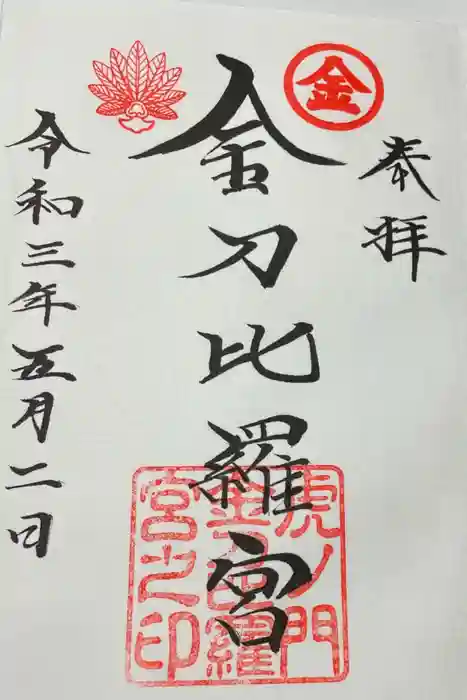 金
奉拝
金刀比羅宮
虎ノ門
金刀比羅
宮之印
令和三年五月二日